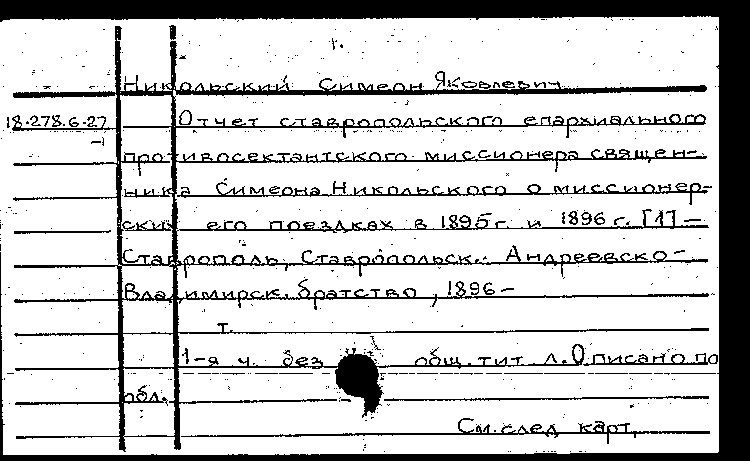 1.
Никольский Симеон Яковлевич
18.278.6.27 Отчет ставропольского епархиального
-1 противосектантского миссионера священ-
ника Симеона Никольского о миссионер-
ских его поездках в 1895 г. и 1896 г. [1] –
Ставрополь, Ставропольск. Андреевско-
Владимирск. братство, 1896 –
т.
1-я ч. без общ. тит л. Описано по
обл.
См. след карт.